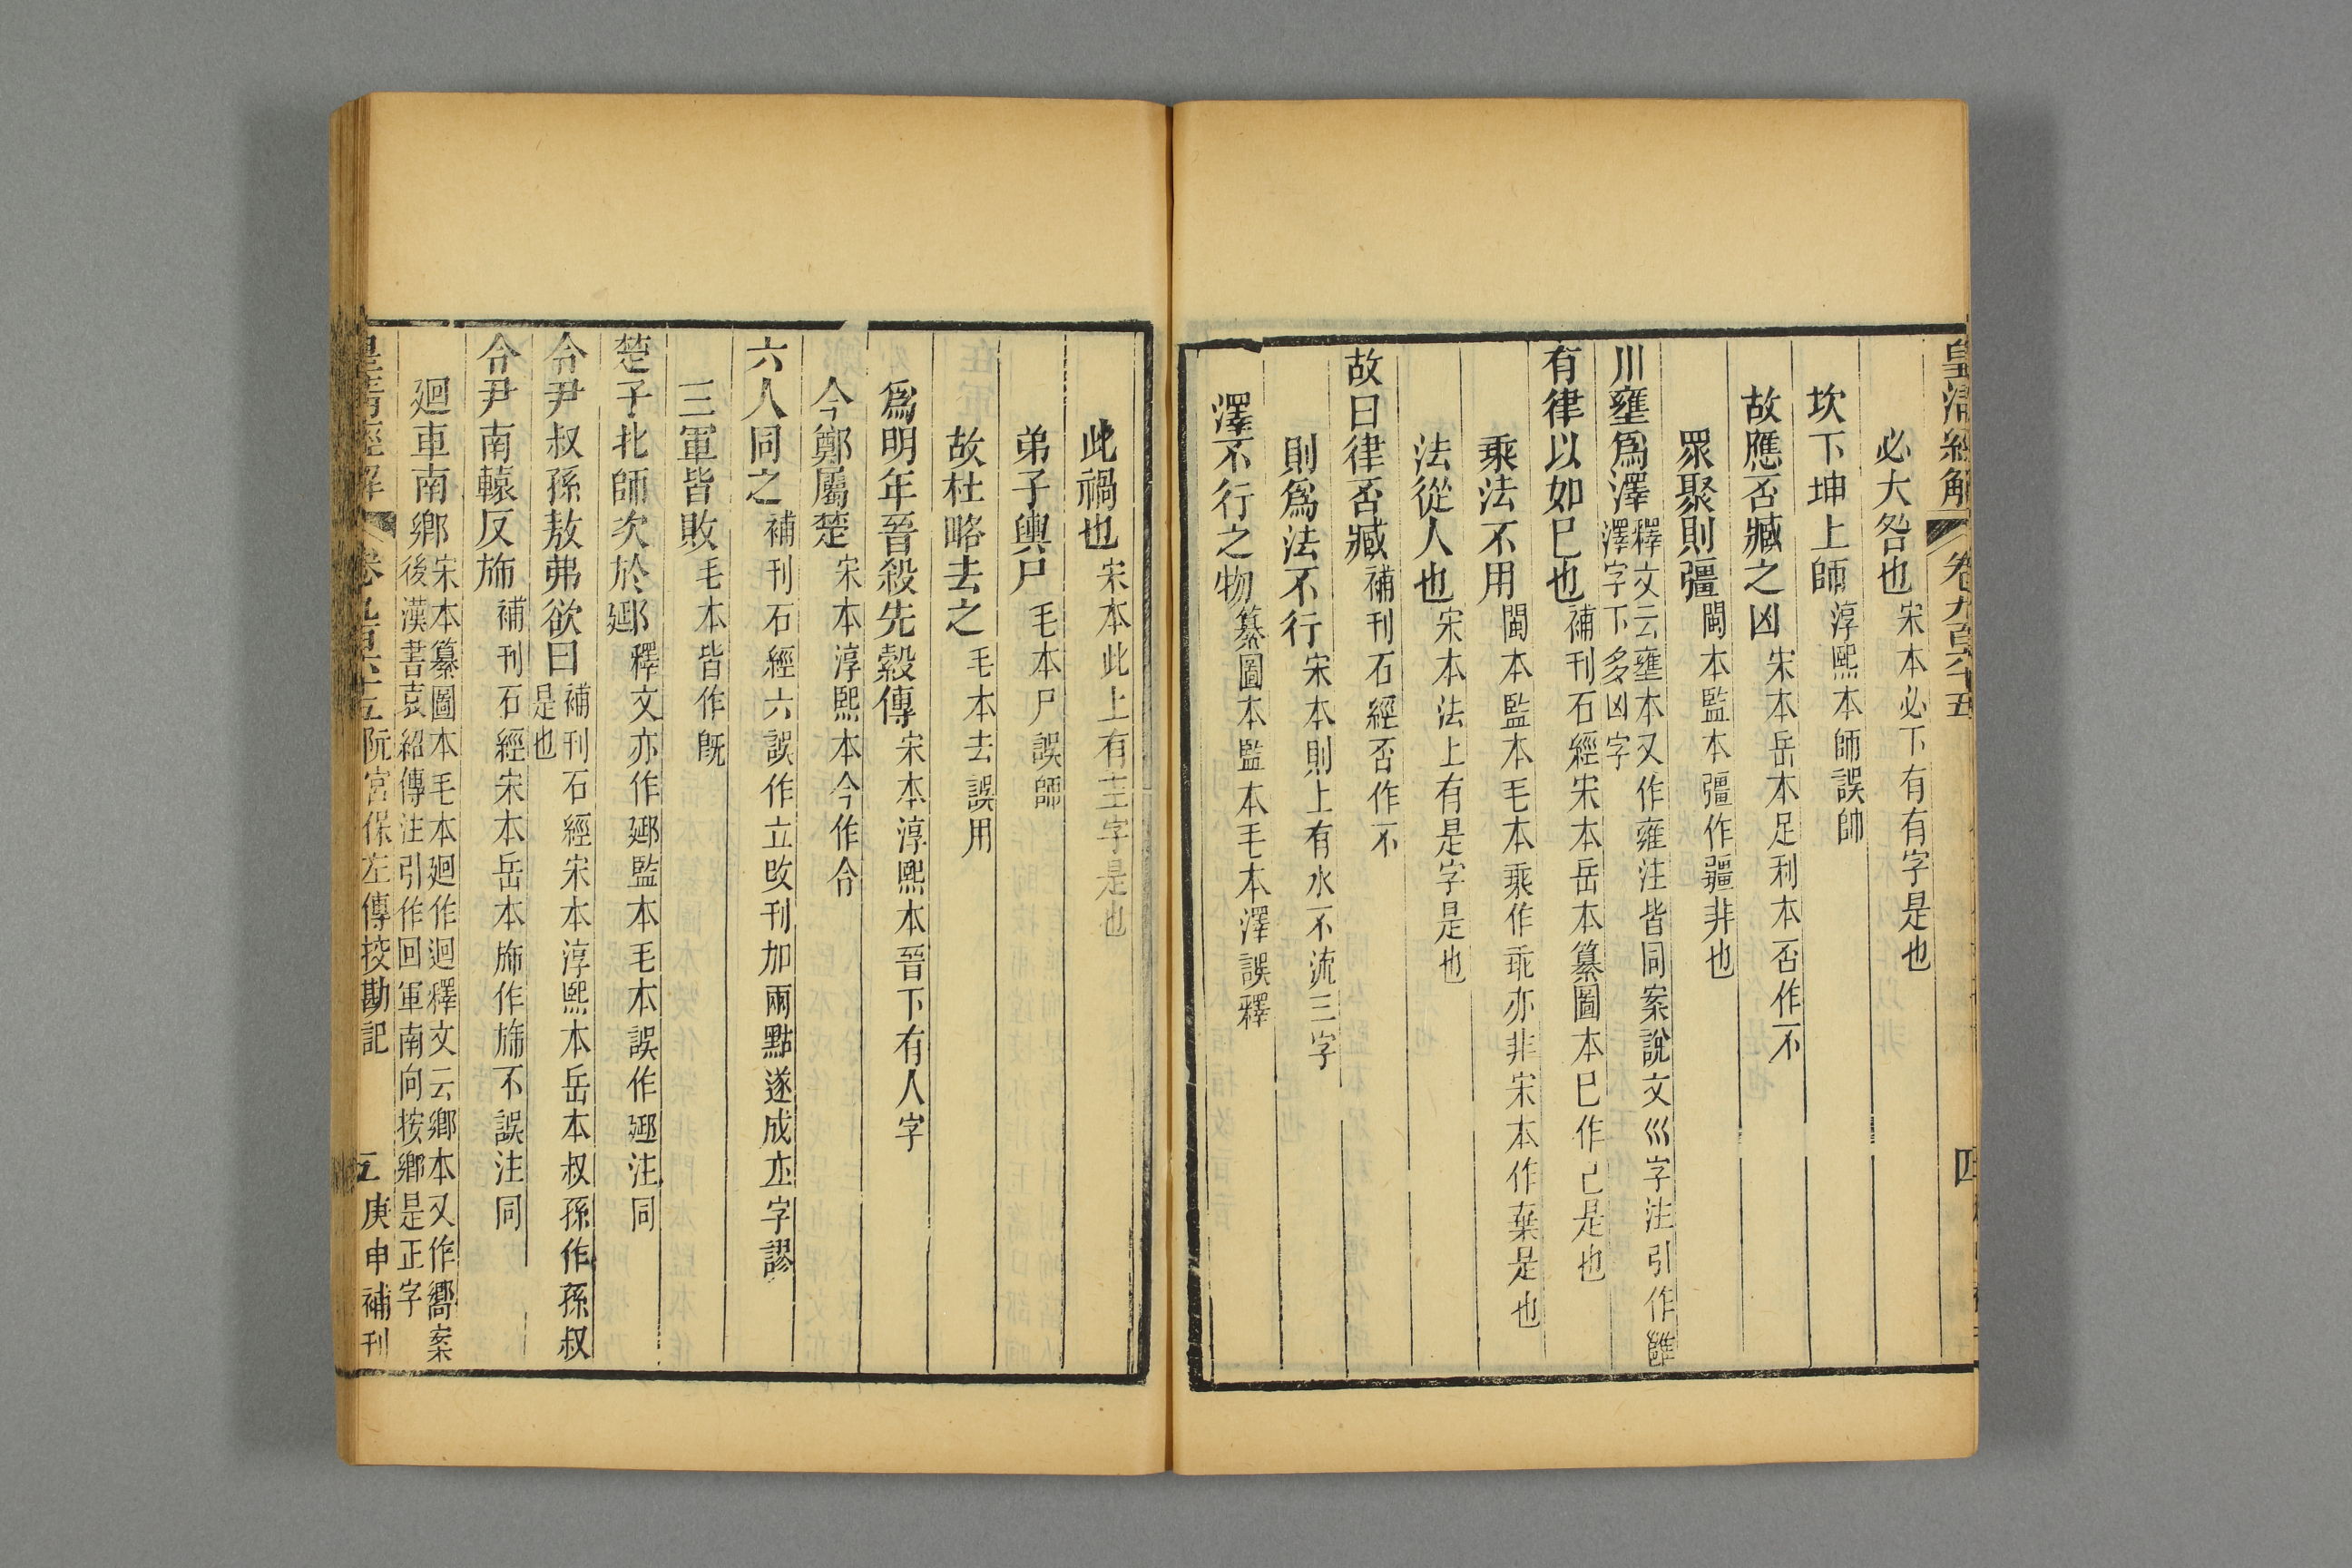 皇清經解 卷九百六十五 四
必大咎也宋本必下有有字是也
坎下坤上師淳熙本師誤帥
故應否臧之凶宋本岳本足利本否作不
眾聚則彊閩本監本彊作疆非也
川壅爲澤釋文云壅本又作雍注皆同案說文巛字注引作
澤字下多凶字
有律以如巳也補刊石經宋本岳本纂圖本巳作己是也
乘法不用閩本監本毛本乘作乖亦非宋本作棄是也
法從人也宋本法上有是字是也
故曰律否臧補刊石經否作不
則爲法不行宋本則上有水不流三字
澤不行之物纂圖本監本毛本澤誤釋
此禍也宋本此上有主字是也
弟子輿尸毛本尸誤師
故杜略去之毛本去誤用
爲明年晉殺先縠傳宋本淳熙本晉下有人字
今鄭屬楚宋本淳熙本今作令
六人同之補刊石經六誤作立改刊加兩點遂成字謬
三軍皆敗毛本皆作旣
楚子北師次於郔釋文亦作郔監本毛本誤作注同
令尹叔孫敖弗欲曰補刊石經宋本淳熙本岳本叔孫作孫叔
是也
令尹南轅反斾補刊石經宋本岳本斾作旆不誤注同
廻車南鄉宋本纂圖本毛本廻作迴釋文云鄉本又作嚮案
後漢書袁紹傳注引作回軍南向按鄉是正字
皇清經解 卷九百六十五 阮宮保左傳挍勘記 五 庚申補刊